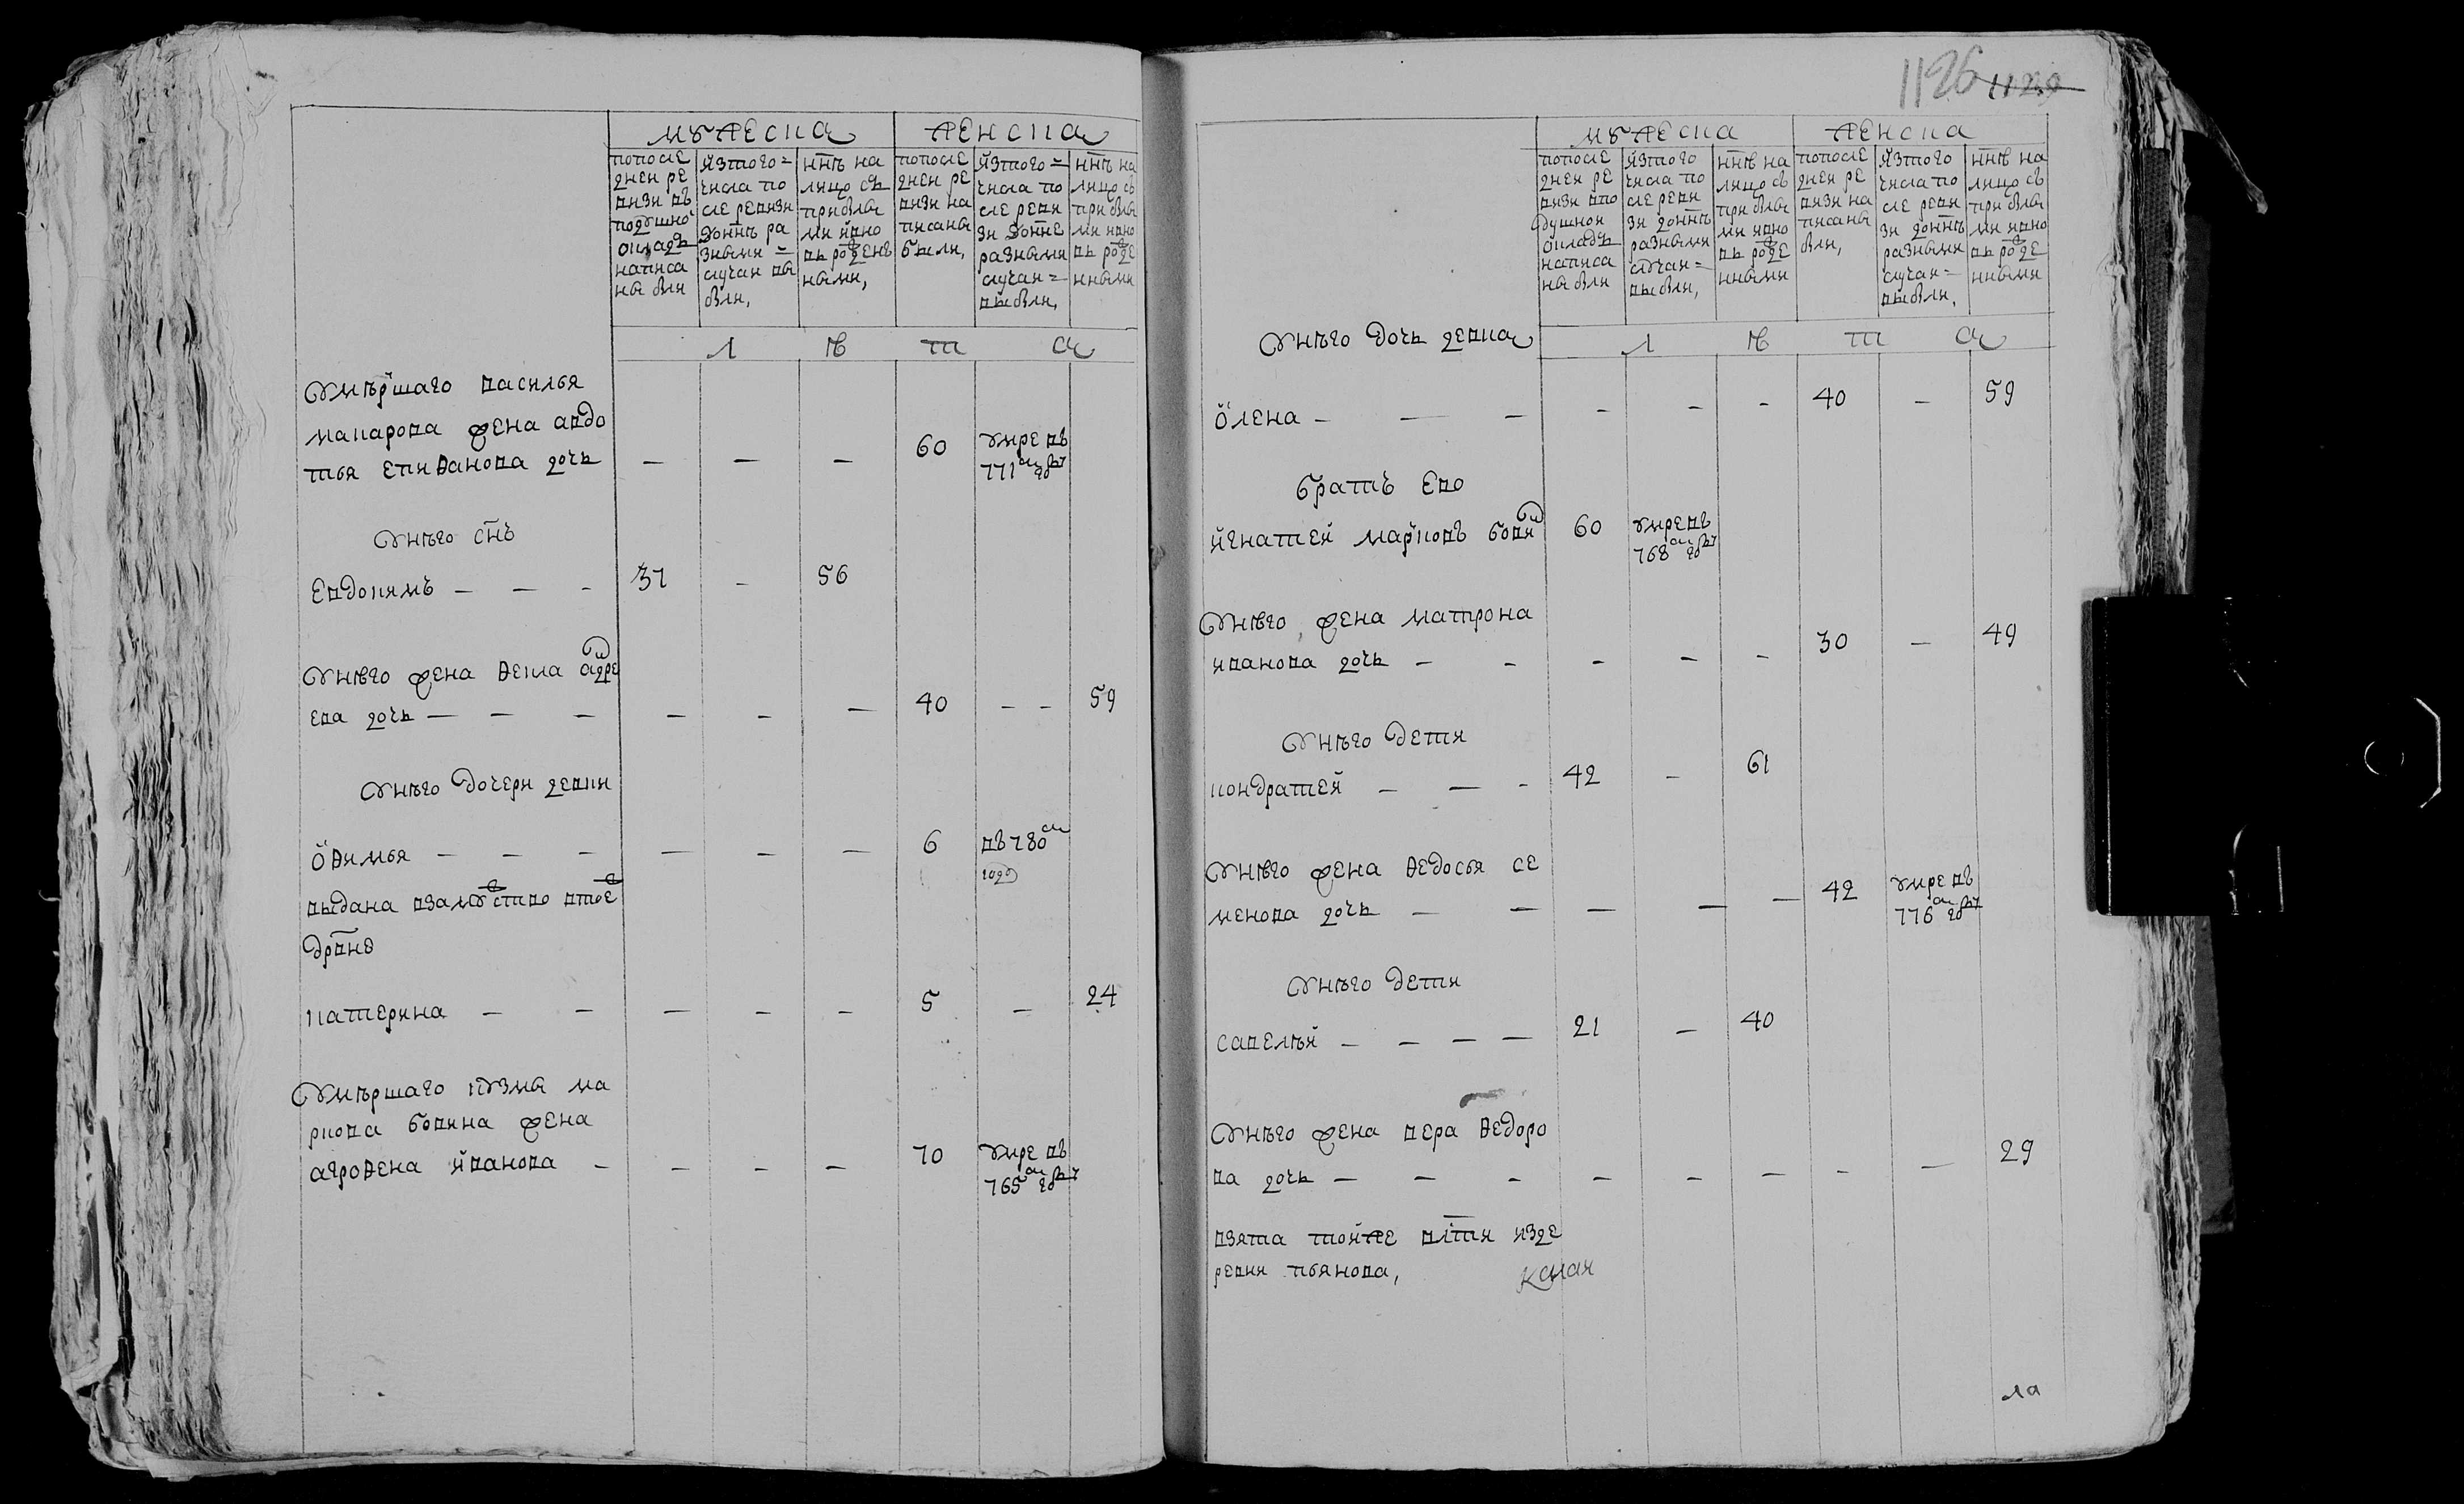 мужеска женска
попосле
дней ре
визи въ
подушно
окладъ
написа
ны были
изтого=
числа по
сле ревизи
доннѣ ра
зными=
случаи вы
были,
ннѣ на
лицо съ
прибылы
ми ивно
вь рожденъ
ными,
попосле
дней ре
визи на
писаны
были,
изтого=
числа по
сле реви
зи донне
разными
случаи=
выбыли,
ннѣ на
лицо съ
прибылы
ми ивно
вь рожде
нными
л ѣ т а
Умѣршаго василья
макарова жена авдо
тья епиѳанова дочь — — — 60 умре въ 771м году
Унѣго сн҃ъ
Евдокимъ — — - 37 - 56
Унѣго жена ѳекла андре
ева дочь — — — — - — 40 - - 59
Унѣго дочери девки
оѳимья — — — — — — 6 въ 780м
году
выдана взамужство втоеж
дрвнѣ
катерина — — — — - 5 — 24
Умѣршаго кузмы ма
ркова бовина жена
агроѳена иванова — — — — 70 умре въ 765м году
1126 1129
мужеска женска
попосле
дней ре
визи впо
душной
окладъ
написа
ны были
изтого
числа по
сле реви
зи доннѣ
разными
случаи=
выбыли,
ннѣ на
лицо съ
прибылы
ми ивно
вь рожде
нными
попосле
дней ре
визи на
писаны
были,
изтого
числа по
сле реви
зи доннѣ
разными
случаи=
выбыли,
ннѣ на
лицо съ
прибылы
ми ивно
вь рожде
нными
л ѣ т а
Унѣго дочь девка
олена — — — - - - 40 - 59
братъ Ево
игнатей марковъ бовин 60 умре въ 768м году
Унѣго жена матрона
иванова дочь — - - - - 30 — 49
Унѣго дети
кондратей — — - 42 - 61
Унѣго жена ѳедосья се
менова дочь — — — — — 42 умре въ 776м году
Унѣго дети
савелѣй — — — — 21 — 40
Унѣго жена вера ѳедоро
ва дочь — — - — - — - — 29
взята тойже влтчи изде
ревни пьянова,
ла